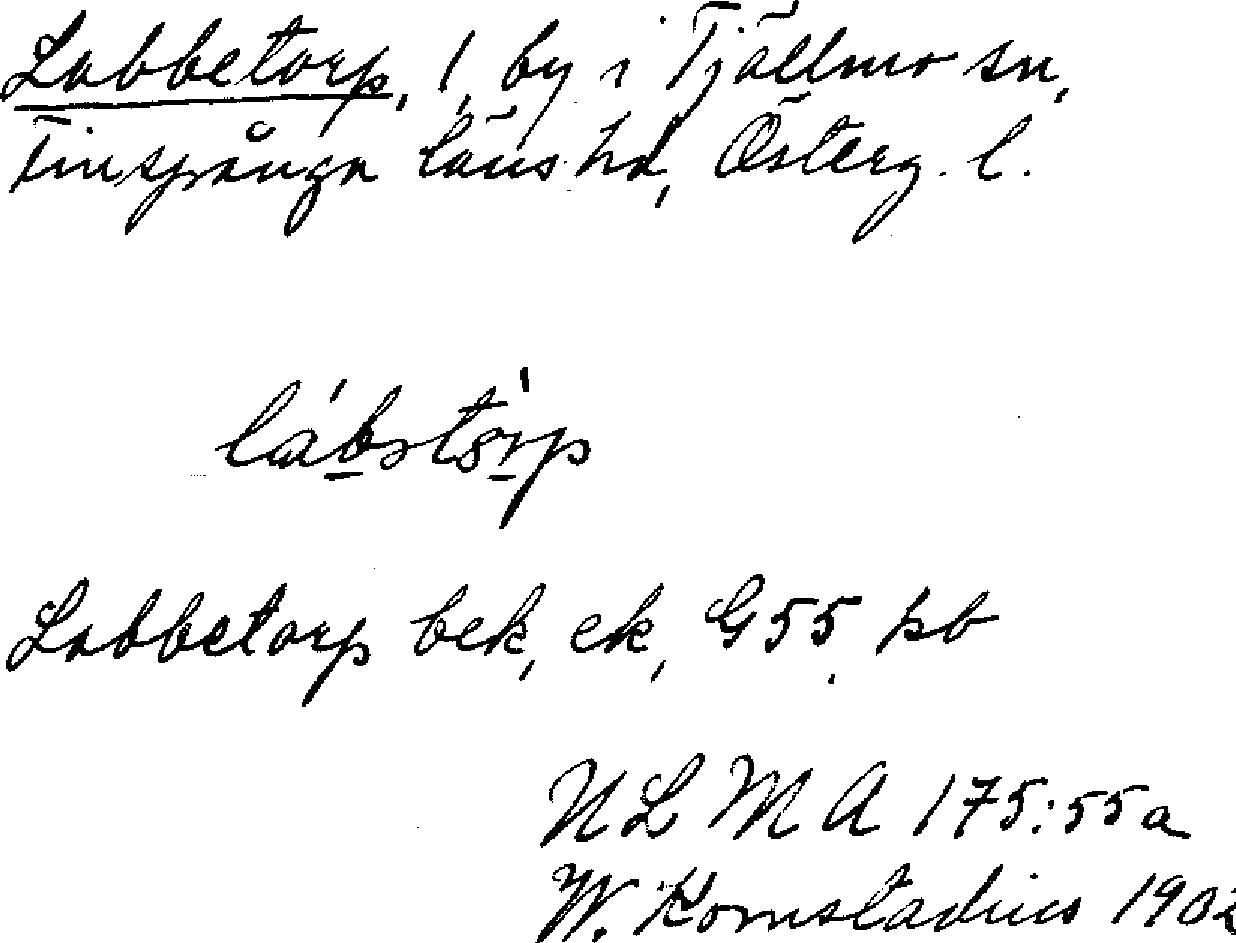 Labbetorp, 1, by i Tjällmo sn,
Finspånga läns hd, Österg. l.
Labbetorp bek, ek, G55, hb
NLMA 175:55a
W. Kornstadius 1902